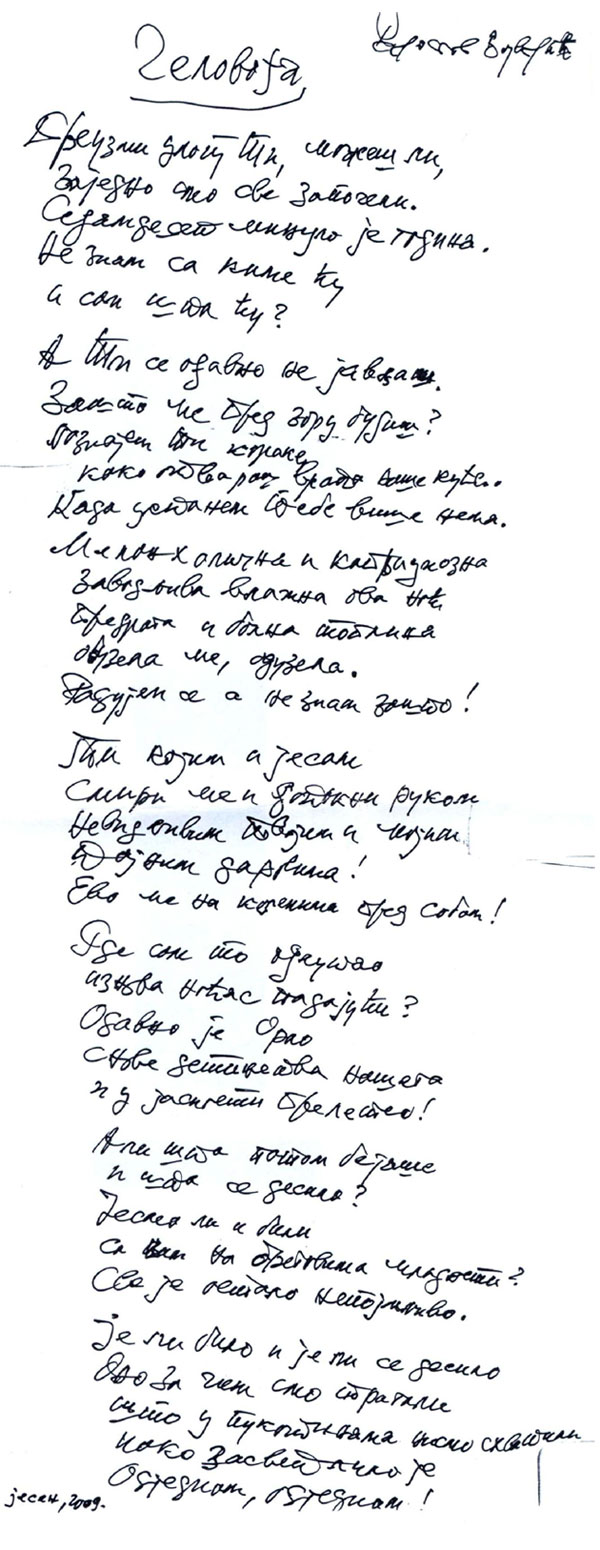 Преузми злост Ти, можеш ли,
Заједно смо све започели.
Седамдесет минуло је година.
Не знам са киме ћу
и сам шта ћу?
А Ти се одавно не јављаш.
Зашто ме пред зору будиш?
Познајем ти кораке
како отвараш врата ваше куће..
Када устанем Тебе више нема.
Меланхолична и каприциозна
Заводљива влажна ова ноћ
Предрага и болна топлина
обузела ме, одузела.
Радујем се а не знам зашто!
Ти којим и јесам
Смири ме и дотакни руком
Невидљивим и
дарвима!
Ево ме на коленима пред собом!
Где сам то
изнова ноћас падајући?
Одавно је Орао
снове детињства нашега
и у јасигети прелетео!
Али шта потом бејаше
и шта се десило?
Јесмо ли и били
са на просторима младости?
Све је остало непојмљиво.
Је ли било и је ли се десило
Ово за чим смо трагали
што у пукотинама смо схватили
како засветлило је
Одједном, одједном!
јесен, 2009.